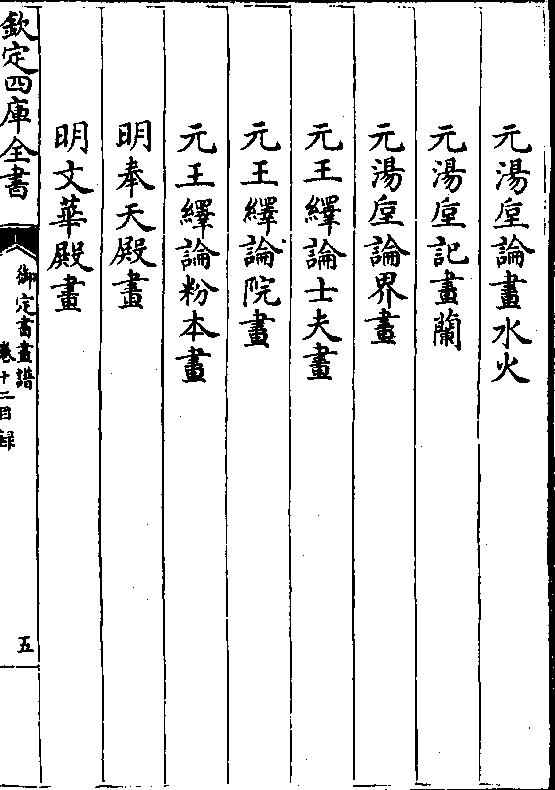 元湯垕論畫水火
元湯垕記畫蘭
元湯垕論界畫
元王繹論士夫畫
元王繹論院畫
元王繹論粉本畫
明奉天殿畫
明文華殿畫
欽定四庫全書
御定書畫譜
卷十二目録
五